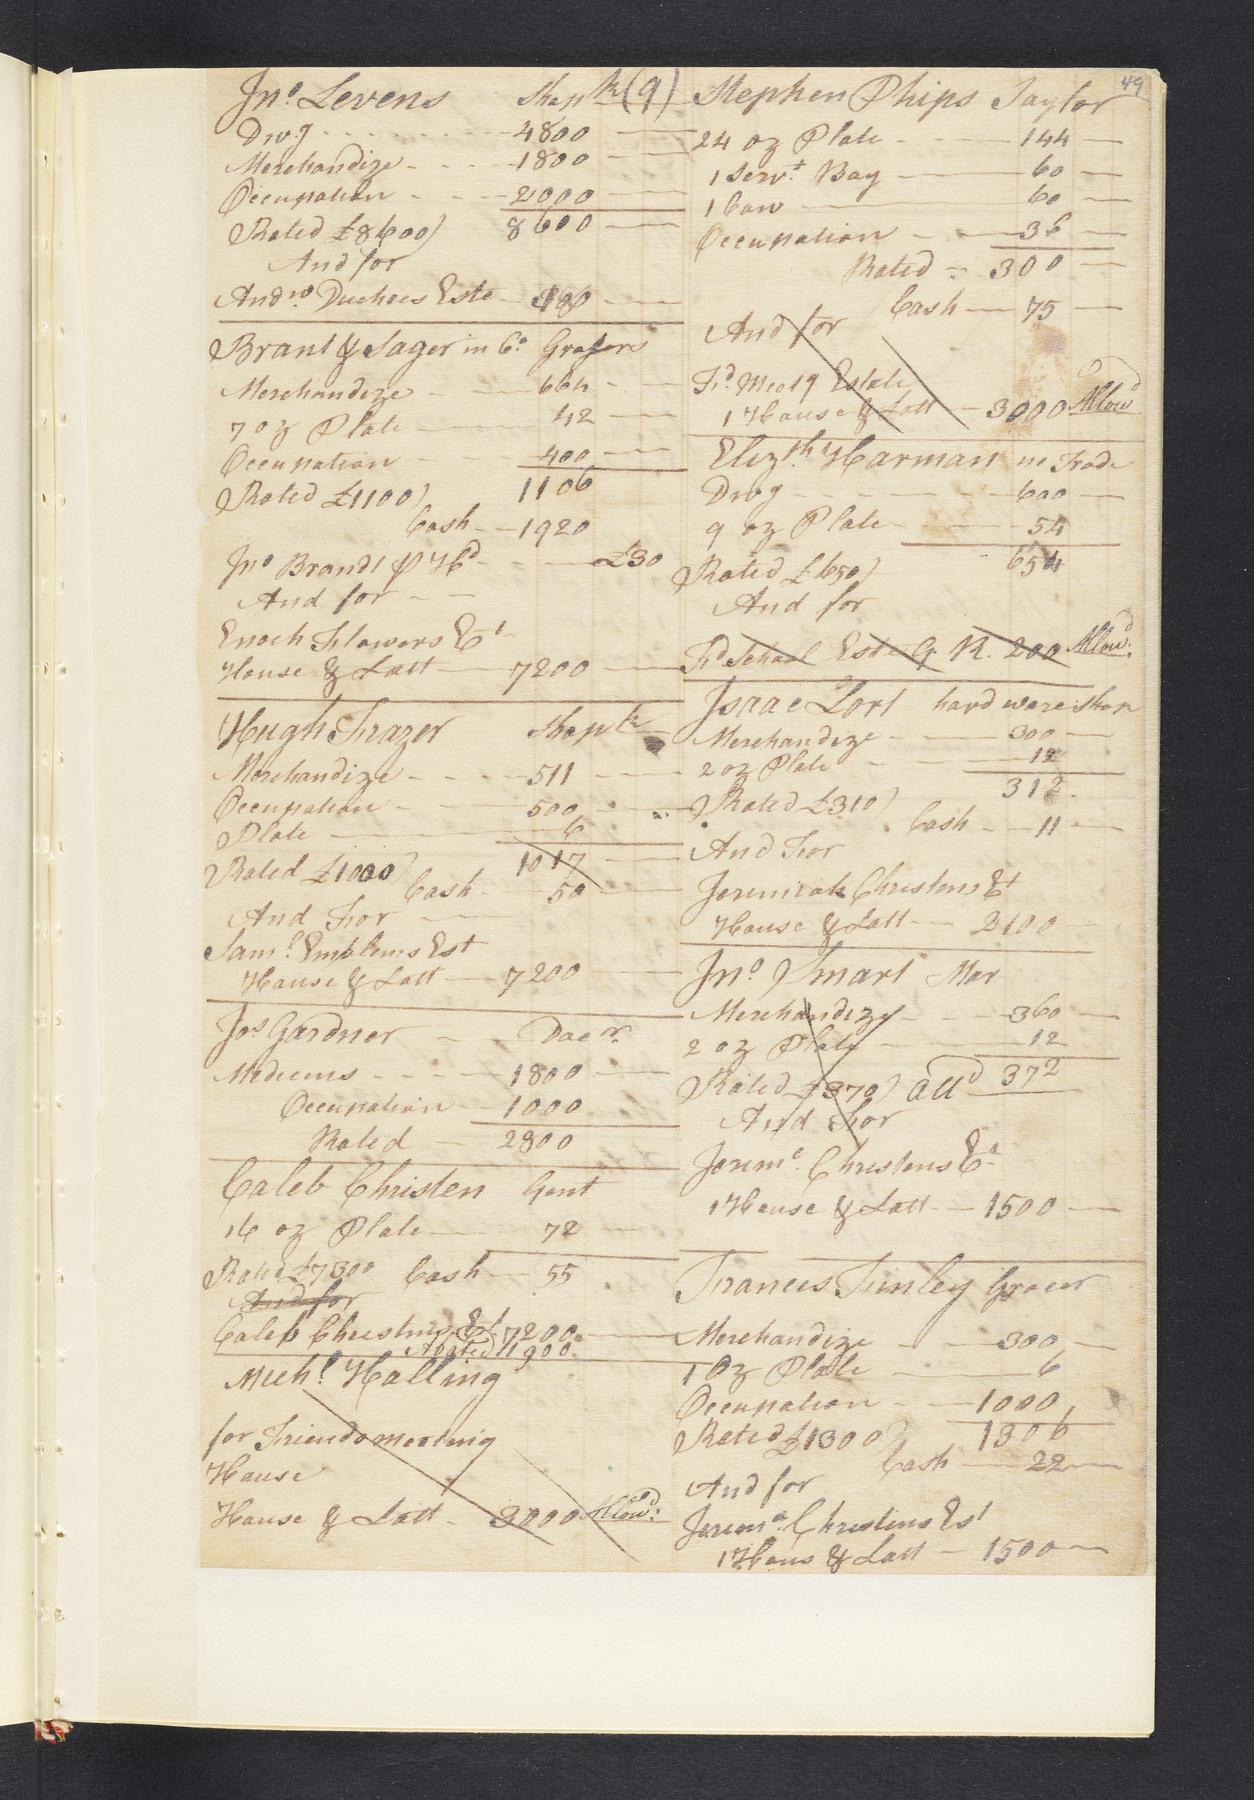 Jno. Levens Shopk (9)
Dwg 4800
Merchandize 1800
Occupation 2000
Rated £8600) 8600
And for
Andw. Duchees Este 180
Brant & Sager in Co. Grosers
Merchandize 664
7 oz Plate 42
Occupation 400
Rated £1100) 1106
Cash 1920
Jno Brandt P Hd £30
And for
Enoch Flowers Et
House & Lott 7200
Hugh Frazer Shopk
Merchandize 511
Occupation 500
Plate 6
1017
Rated £1000)
Cash 50
And For
Saml. Emblems Est
House & Lott 7200
Jos Gardner Docr.
Mediums 1800
Occupation 1000
Rated 2800
Caleb Christen Gent
16 oz Plate 72
Rated £7300 Cash 55
And for
Caleb Cheestins Et 7200
1900
Michl. Halling
for Friends meeting
House
House & Lott 3000 Allowd.
49
Stephen Phips Taylor
24 oz Plate 144
1 Servt. Boy 60
1 Cow 60
Occupation 36
Rated 300
Cash 75
And for
Fd. Meetg Estate
1 House & Lott 3000 Allowd
Elizth. Harman in Trade
Dwg 600
9 oz Plate 54
Rated £650) 654
And for
Fd School Este G R. 200 Allowd.
Isaac Lort hard ware Shop
Merchandize 300
2 oz Plate 12
312
Rated £310)
Cash 11
And For
Jeremiah Christens Et
House & Lott 2100
Jno Smart Mer
Merchandize 360
2 oz Plate 12
Rated £370) alld 372
And For
Jereme. Christens Et
1 House & Lott 1500
Frances Finley Grocer
Merchandize 300
1 Oz Plate 6
Occupation 1000
Rated £1300) 1306
Cash 22
And for
Jereme. Christins Est
1 Hous & Lott 1500